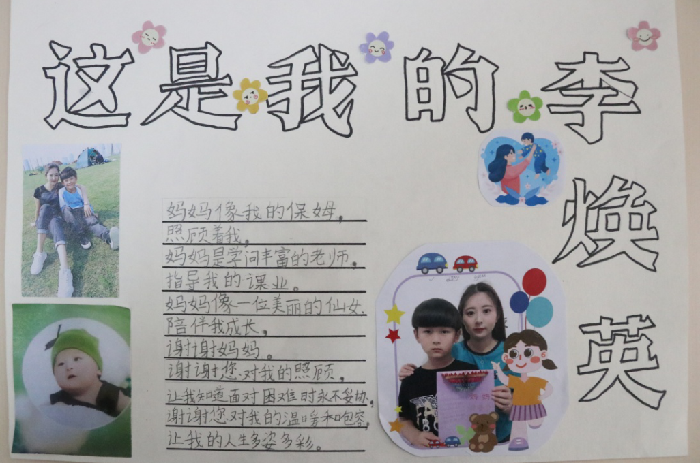 这是我的李焕英
妈妈像我的保姆,
照顾着我,
妈妈是学问丰富的老师,
指导我的课业。
妈妈像一位美丽的仙女,
陪伴我成长,
谢谢妈妈。
谢谢您对我的照顾,
让我知道面对困难时永不妥协,
谢谢您对我的温暖和包容,
让我的人生多姿多彩。